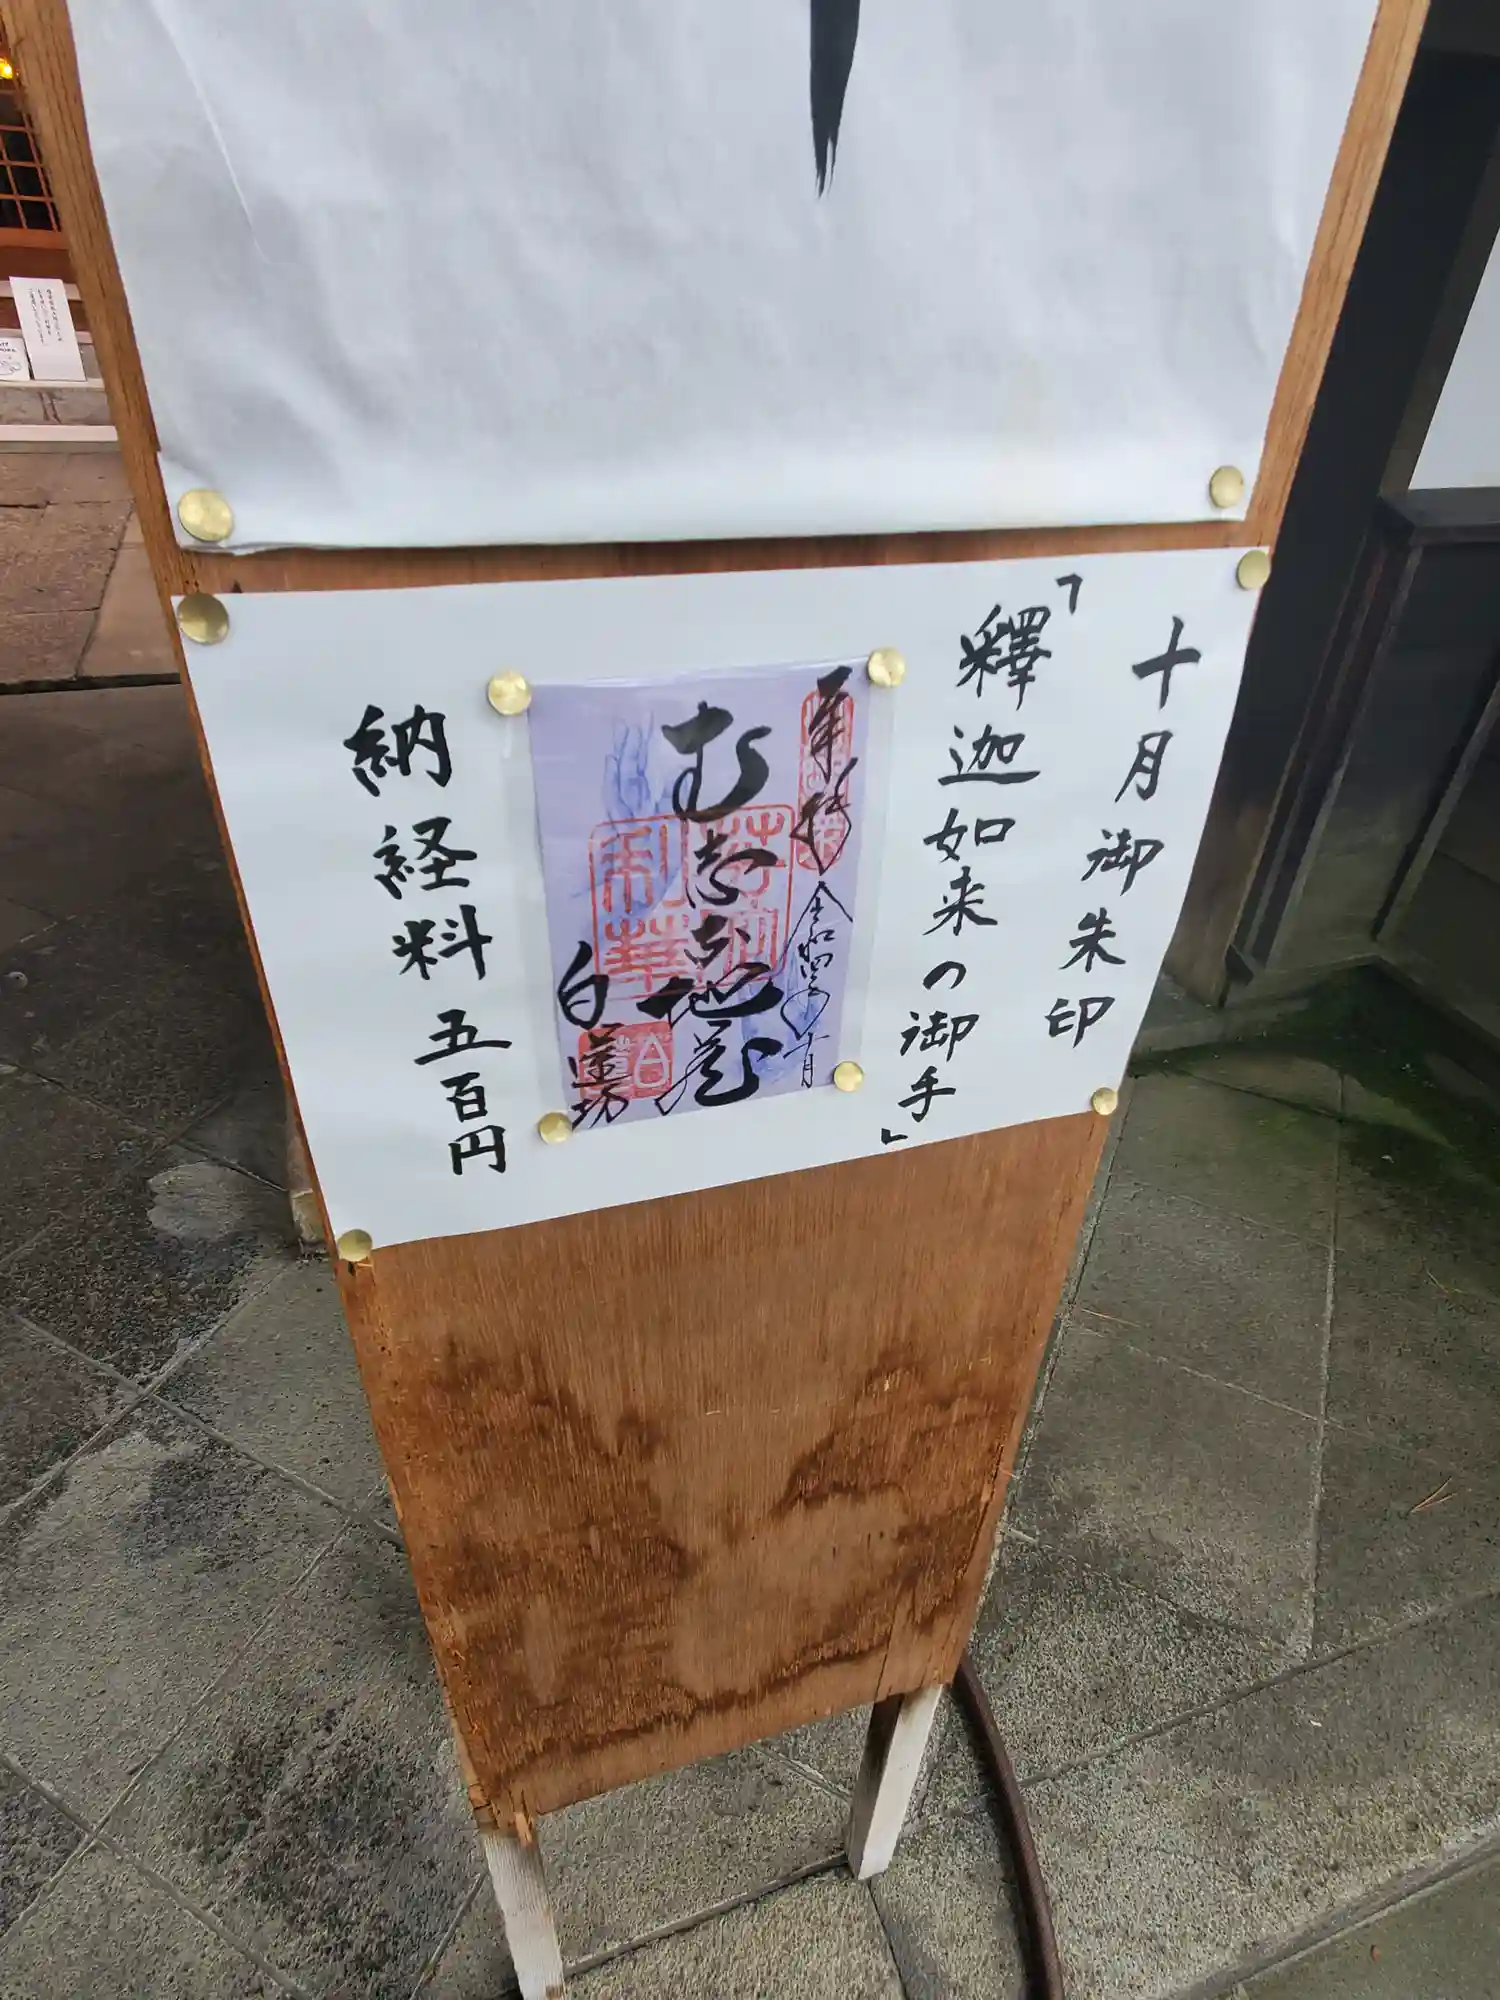 十月御朱印
「釋迦如来の御手」
奉拝
令和四年十月
むしな地蔵
白蓮坊
納経料 五百円